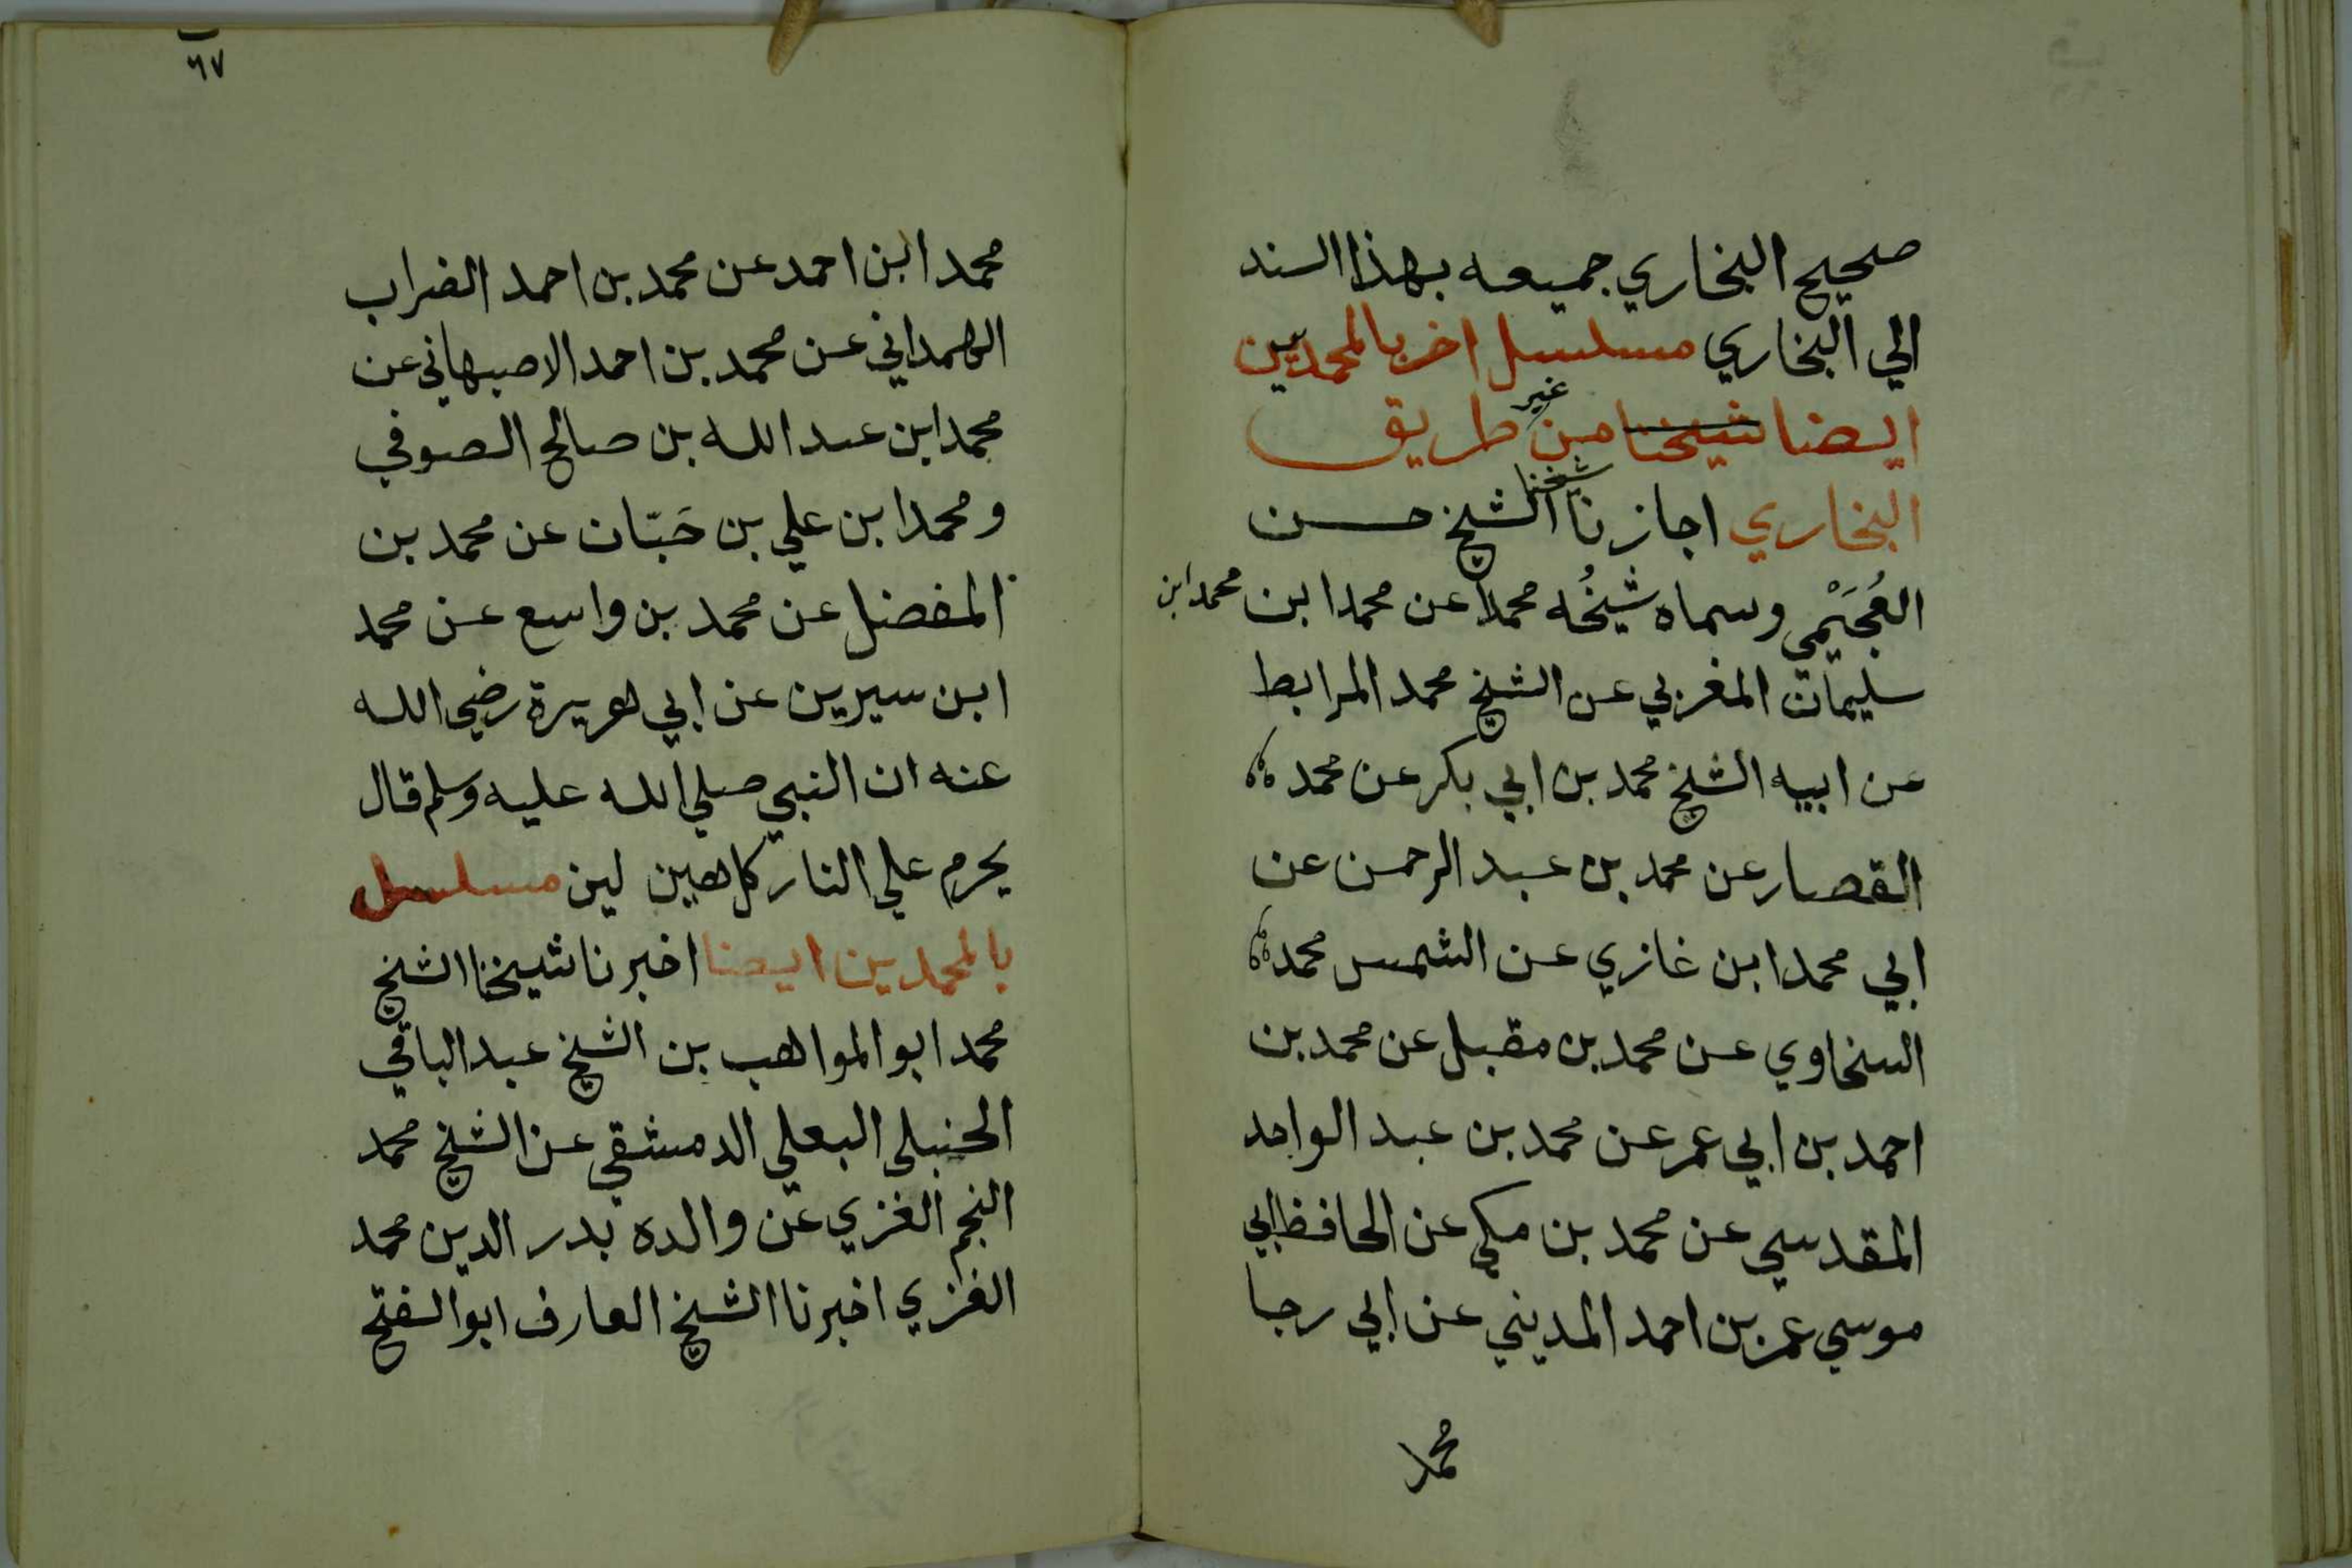 صحيح البخاري جميعه بهذا السند
الي البخاري مسلسل اخر بالمحمديين
ايضا شيخنا من غير طريق
البخاري اجازنا شيخنا الشيخ حسن
العُجَيْمي وسماه شيخُه محمدا عن محمد ابن محمد ابن
سليمان المغربي عن الشيخ محمد المرابط
عن ابيه الشيخ محمد بن ابي بكر عن محمد
القصار عن محمد بن عبد الرحمن عن
ابي محمد ابن غازي عن الشمس محمد
السخاوي عن محمد بن مقبل عن محمد بن
احمد بن ابي عمر عن محمد بن عبد الواحد
المقدسي عن محمد بن مكي عن الحافظ ابي
موسي عمر بن احمد المديني عن ابي رجا
محمد
٦٧
محمد ابن احمد عن محمد بن احمد الضراب
الهمداني عن محمد بن احمد الاصبهاني عن
محمد ابن عبد الله بن صالح الصوفي
ومحمد ابن علي بن حَبّان عن محمد بن
المفضل عن محمد بن واسع عن محمد
ابن سيرين عن ابي هريرة رضي الله
عنه ان النبي صلي الله عليه وسلم قال
يحرم علي النار كل هين لين مسلسل
بالمحمديين ايضا اخبرنا شيخنا الشيخ
محمد ابو المواهب بن الشيخ عبد الباقي
الحنبلي البعلي الدمشقي عن الشيخ محمد
النجم الغزي عن والده بدر الدين محمد
الغزي اخبرنا الشيخ العارف ابو الفتح